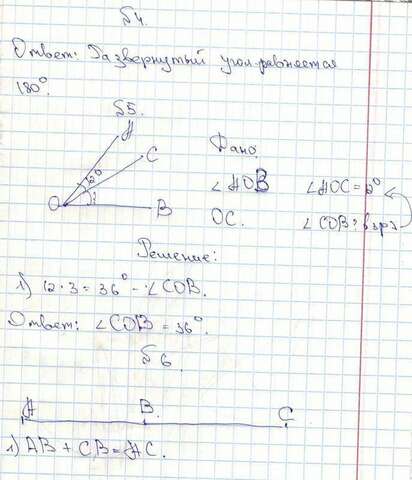 №4.
Ответ: Развернутый угол равняется
180°.
№5.
A
C
12°
O
B
Дано
∠AOB ∠AOC=12°
OC. ∠COB, в 3 р >
Решение:
1) 12·3=36° - ∠COB.
Ответ: ∠COB=36°.
№6
A B. C
1) AB+CB=AC.